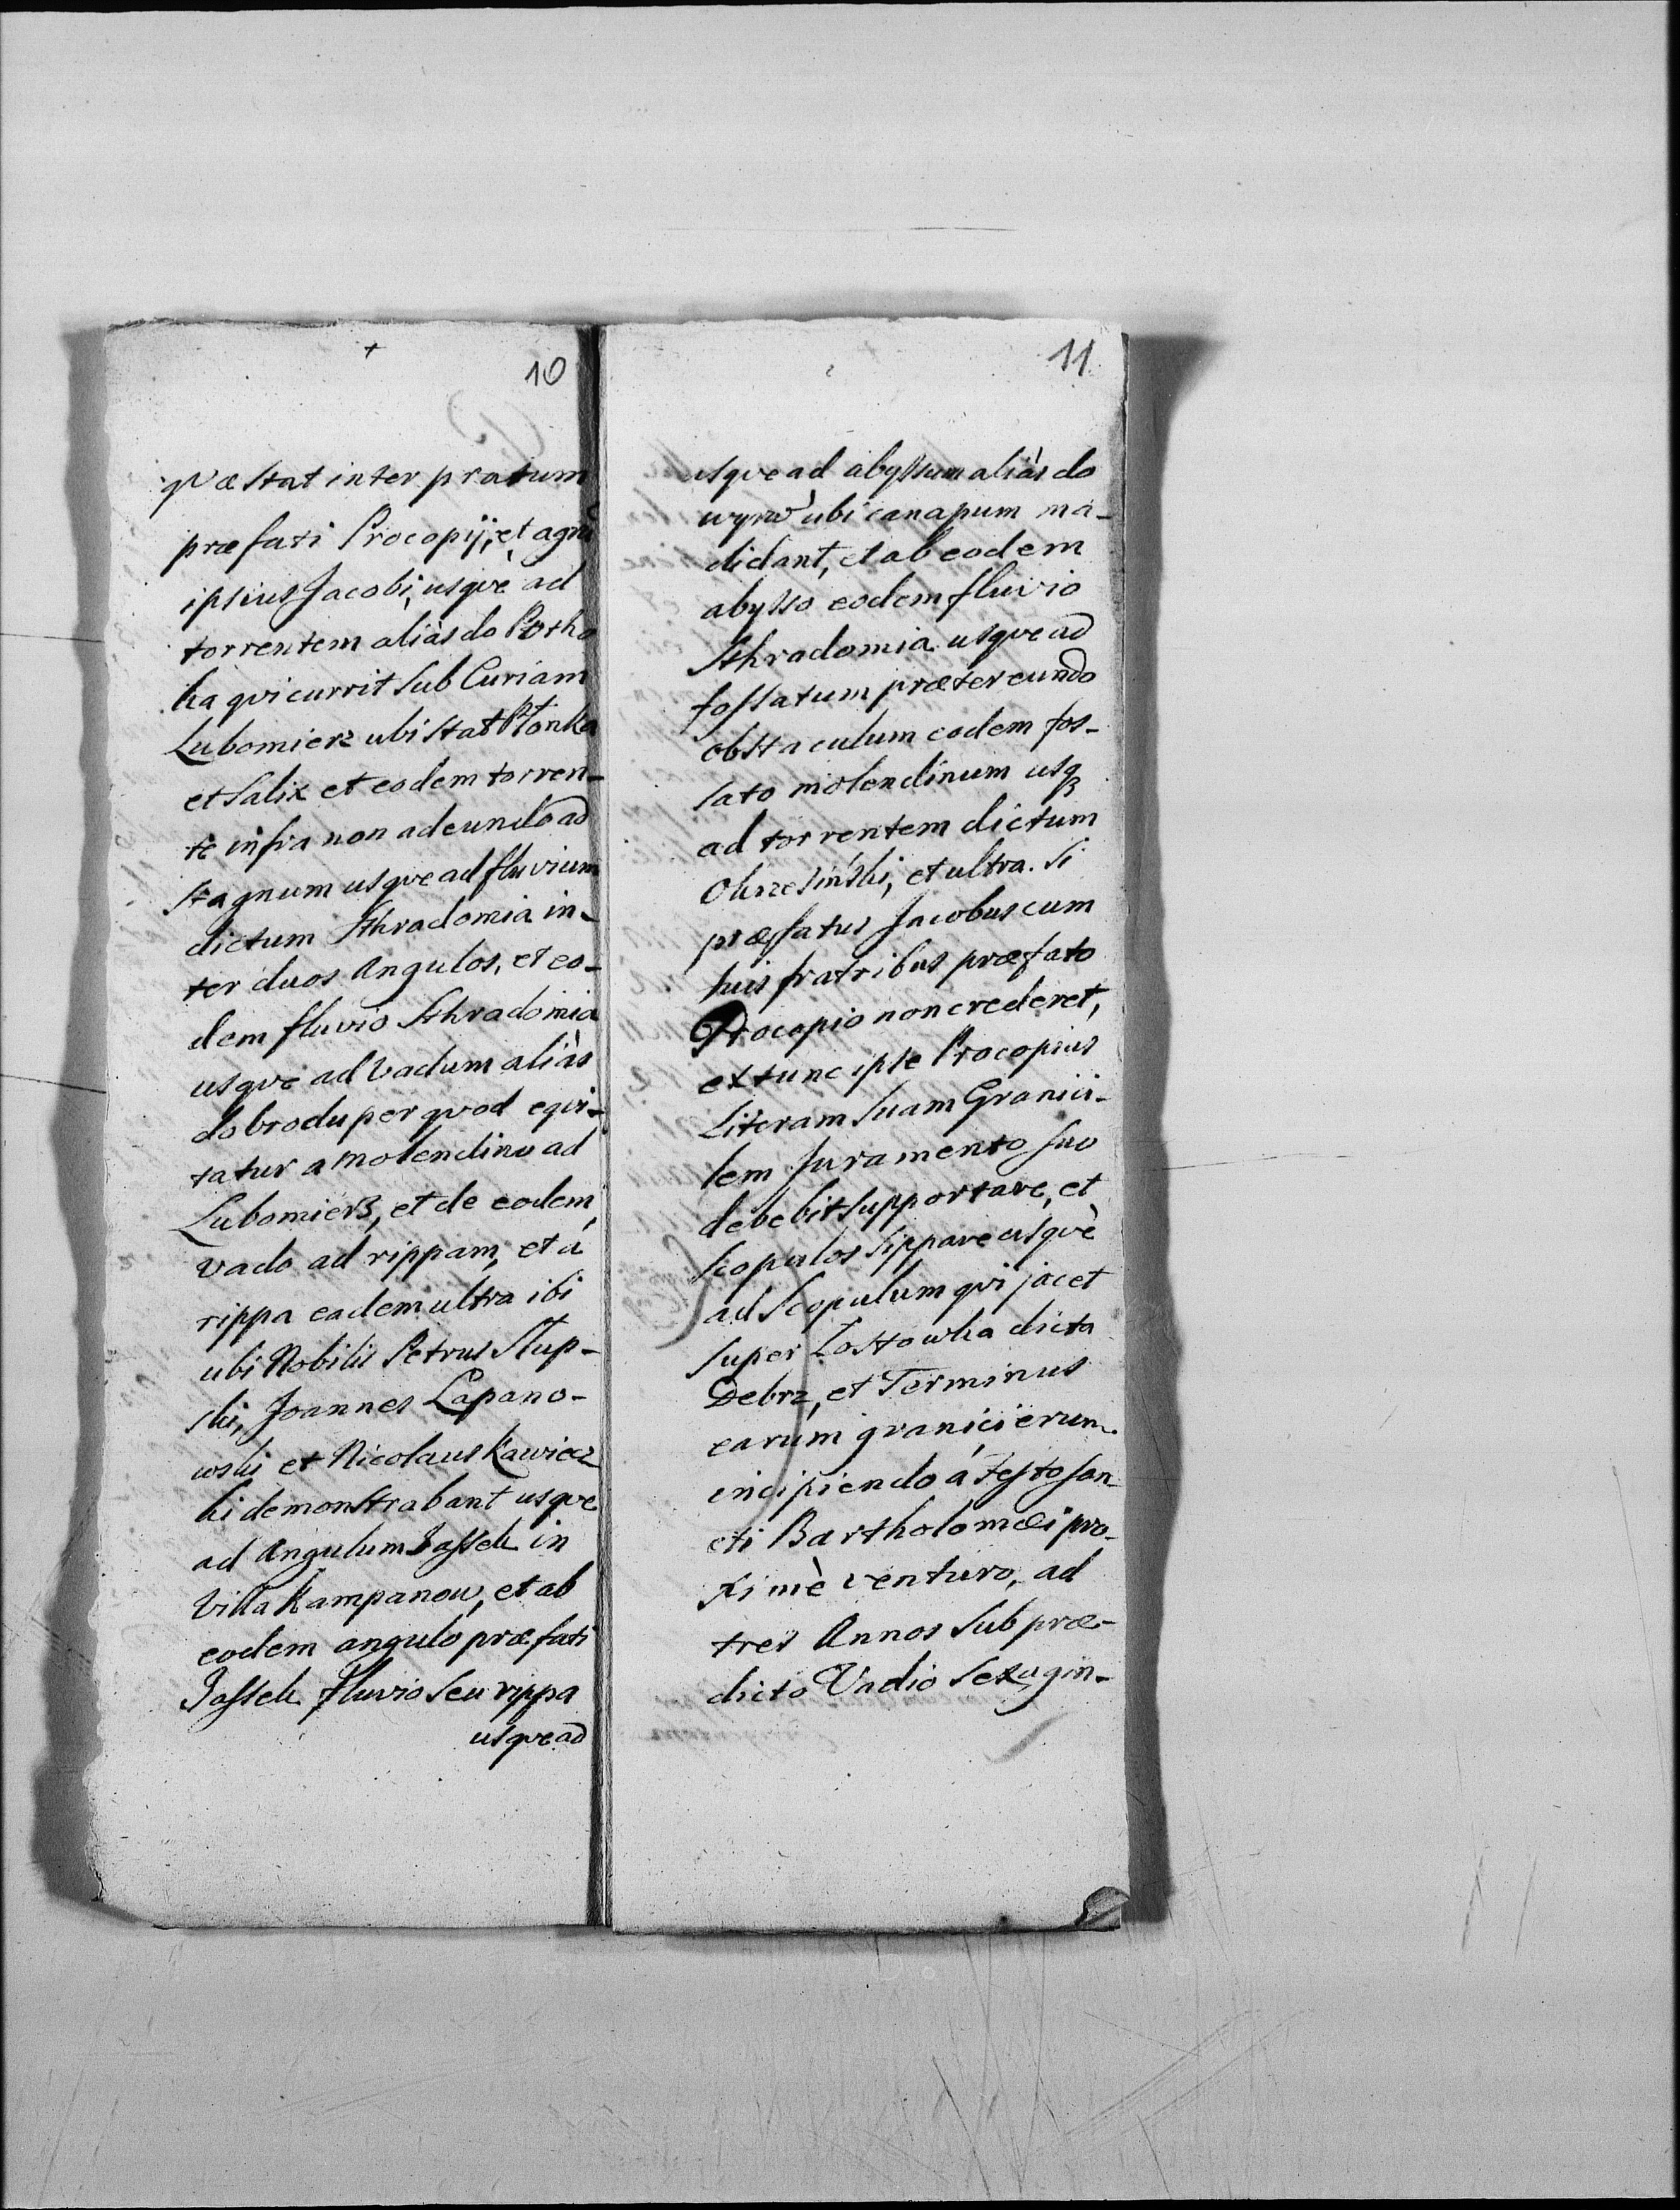 10
quæ stat inter pratum
præfati Procopij, et agru
ipsius Jacobi, usqvè ad
torrentem aliàs do Potho
ka qvi currit sub Curiam
Lubomierz ubi stat Płonka
et Salix et eodem torren-
te infra non adeundo ad
stagnum usqve ad fluvium
dictum Sthradomia in-
ter duos Angulos, et eo-
dem fluvio Sthradomia
usqve ad Vadum aliàs
do brodu per qvod eqvi-
tatur a molendino ad
Lubomierz, et de eodem
vado ad rippam, et á
rippa eadem ultra ibi
ubi Nobilis Petrus Słup-
ski, Joannes Łapano-
wski et Nicolaus Kawiecz
ki demonstrabant usqve
ad Angulum Jassek in
Villa Kampanow, et ab
eodem angulo præfati
Jassek fluvio seu rippa
usqve ad
11
usqve ad abyssum aliàs do
wyrw ubi canapum ma-
didant, et ab eodem
abysso eodem fluvio
Sthradomia usqve ad
fossatum prætereundo
obstaculum eodem fos-
sato molendinum usq
ad torrentem dictum
Okrzesiński, et ultra. Si
præfatus Jacobus cum
suis fratribus præfato
Procopio non crederet,
extunc ipse Procopius
Literam suam Granici-
lem Juramento suo
debebit supportare, et
scopulos sippare usqvè
ad Scopulum qvi jacet
super Łostowka dicta
Debrz, et Terminus
earum granicierum
incipiendo á Festo san-
cti Bartholomæi pro-
ximè venturo, ad
tres Annos sub præ-
dicto Vadio sexagin-